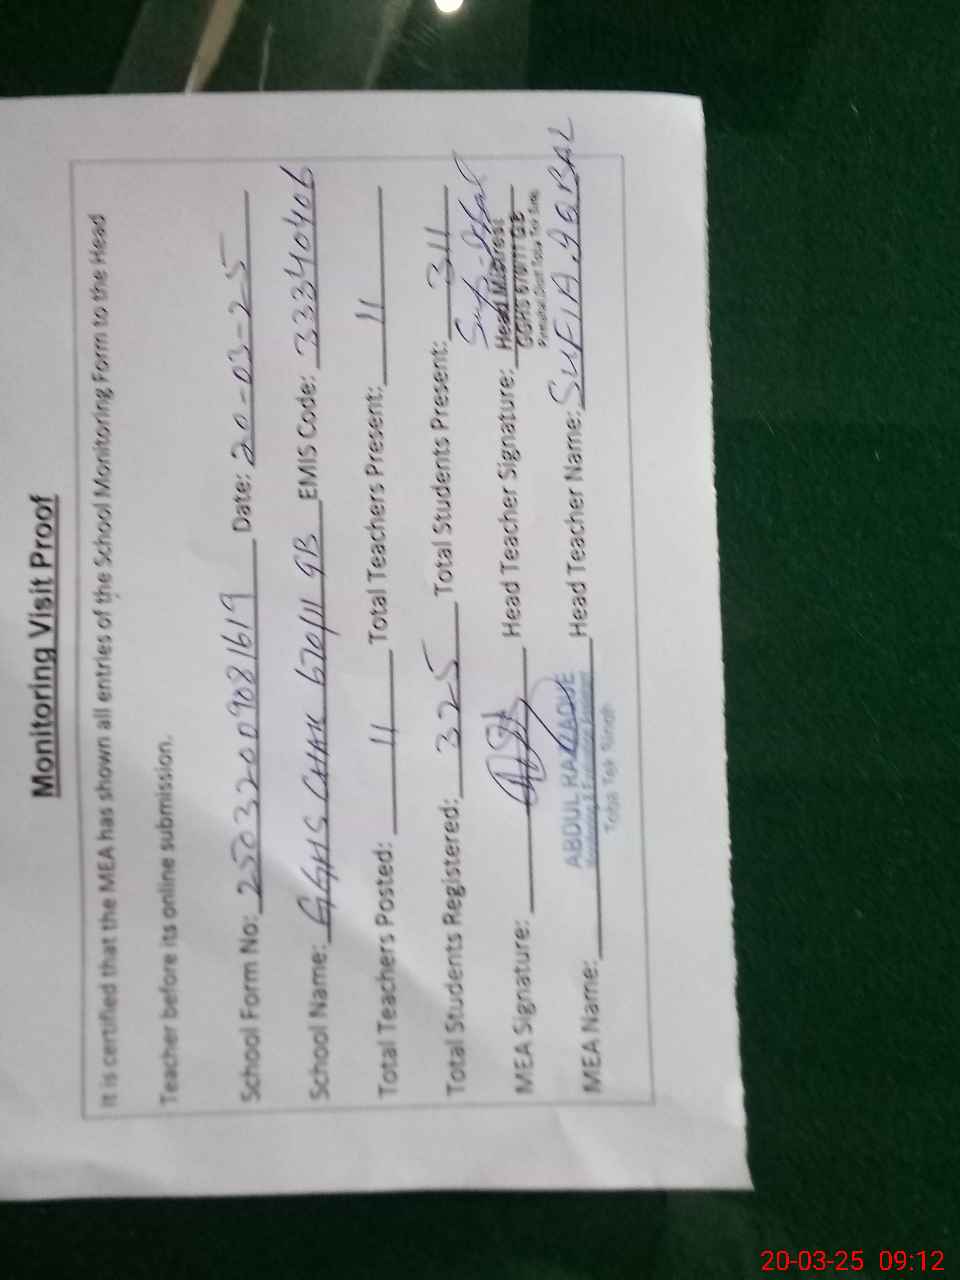 Monitoring Visit Proof
It is certified that the MEA has shown all entries of the School Monitoring Form to the Head
Teacher before its online submission.
School Form No: 25032009081619 Date: 20-03-25
School Name: GGHS CHAK 670/11 GB EMIS Code: 33340406
Total Teachers Posted: 11 Total Teachers Present: 11
Total Students Registered: 325 Total Students Present: 311
MEA Signature: Head Teacher Signature:
Head Mistress
GGHS 670/11 GB
MEA Name: ABDUL Head Teacher Name: SUFIA IQBAL
Toba Tek Singh
20-03-25 09:12